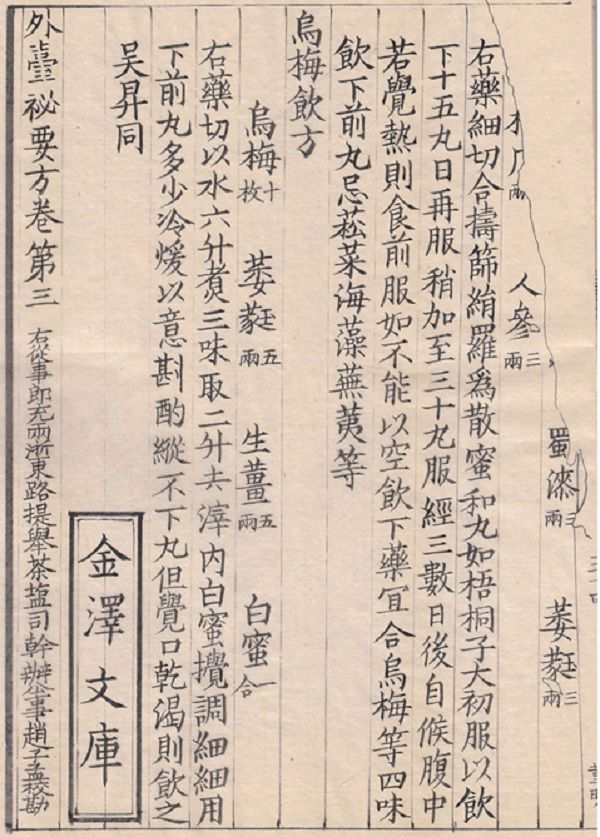 蜀漆三兩 萎蕤三兩
人參三兩
右藥細切合擣篩絹羅爲散蜜和丸如梧桐子大初服以飲
下十五丸日再服稍加至三十丸服經三數日後自候腹中
若覺熱則食前服如不能以空飲下藥冝合烏梅等四味
飲下前丸忌菘菜海藻蕪荑等
烏梅飲方
烏梅十枚 萎蕤五兩 生薑五兩 白蜜一合
右藥切以水六升煑三味取二升去滓内白蜜攪調細細用
下前丸多少冷煖以意斟酌縱不下丸但覺口乾渴則飲之
吴昇同
金澤文庫
外臺祕要方卷第三 右從事郎充兩浙東路提舉茶塩司幹辦公事趙子孟校勘